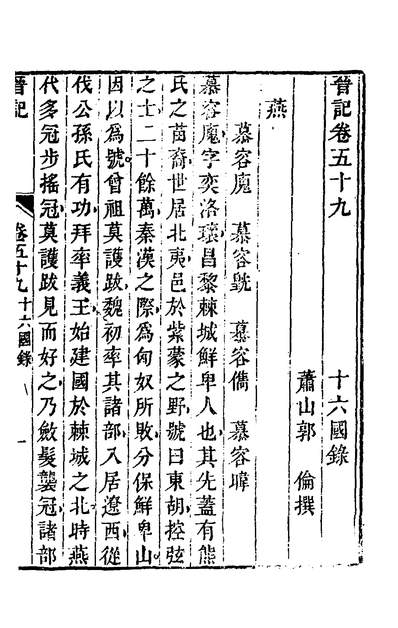 晉記卷五十九　十六國錄
蕭山郭　倫撰
燕
慕容廆　慕容皝　慕容儁　慕容暐
慕容廆字奕洛瓌昌黎棘城鮮卑人也其先蓋有熊
氏之苗裔世居北夷邑於紫蒙之野號曰東胡控弦
之士二十餘萬秦漢之際為匈奴所敗分保鮮卑山
因以為號曾祖莫護跋魏初率其諸部入居遼西從
伐公孫氏有功拜率義王始建國於棘城之北時燕
代多冠步搖冠莫護跋見而好之乃斂髮襲冠諸部
晉記　卷五十九　十六國錄　一